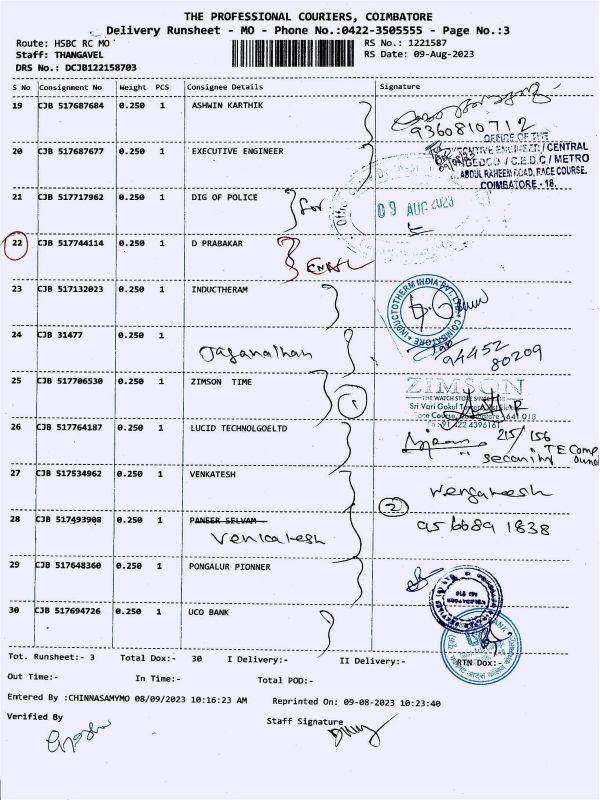 THE PROFESSIONAL COURIERS, COIMBATORE
Delivery Runsheet - MO - Phone No.:0422-3505555 - Page No.:3
Route: HSBC RC MO
RS No.: 1221587
Staff: THANGAVEL
RS Date: 09-Aug-2023
DRS No.: DCJB122158703
S No Consignment No Weight PCS Consignee Details Signature
19 CJB 517687684 0.250 1 ASHWIN KARTHIK
9360810712
20 CJB 517687677 0.250 1 EXECUTIVE ENGINEER
OFFICE OF THE
EXECUTIVE ENGINEER / CENTRAL
/ C.E.D.C / METRO
ABDUL RAHEEM ROAD, RACE COURSE,
COIMBATORE - 18.
21 CJB 517717962 0.250 1 DIG OF POLICE
09 AUG 2023
22 CJB 517744114 0.250 1 D PRABAKAR
23 CJB 517132023 0.250 1 INDUCTHERAM
INDUCTOTHERM INDIA PVT. LTD.
COIMBATORE
24 CJB 31477 0.250 1
Jaganathan
94452
80209
25 CJB 517706530 0.250 1 ZIMSON TIME
1
ZIMSON
THE WATCH STORE SINCE
Sri Vari Gokul
641 018
26 CJB 517764187 0.250 1 LUCID TECHNOLGOELTD
215/156
security
27 CJB 517534962 0.250 1 VENKATESH
Vengatesh
2
28 CJB 517493908 0.250 1 PANEER SELVAM
Venkatesh
9566891838
29 CJB 517648360 0.250 1 PONGALUR PIONNER
30 CJB 517694726 0.250 1 UCO BANK
Tot. Runsheet:- 3 Total Dox:- 30 I Delivery:- II Delivery:- RTN Dox:-
Out Time:- In Time:- Total POD:-
Entered By :CHINNASAMYMO 08/09/2023 10:16:23 AM Reprinted On: 09-08-2023 10:23:40
Verified By
Staff Signature